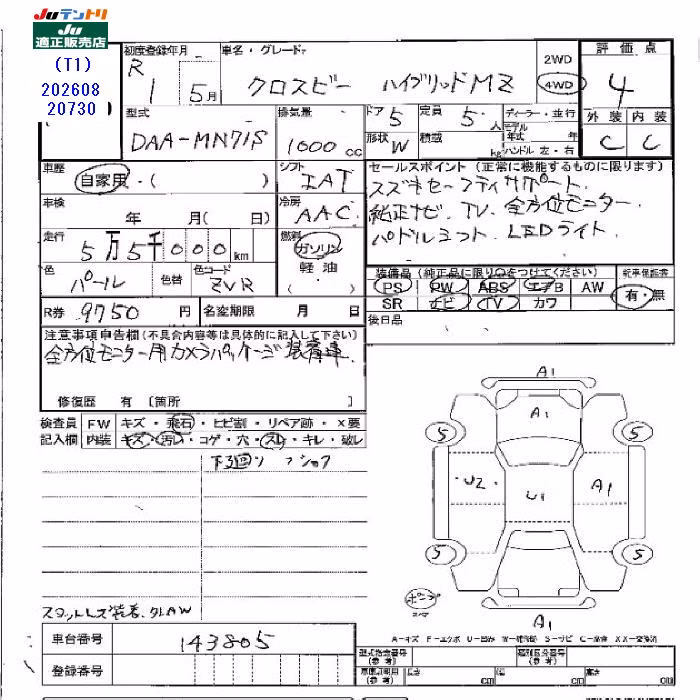 Juテントリ
Ju
適正販売店
(T1)
202608
20730
初度登録年月 車名・グレード 2WD 評価点
R 1 5月 クロスビー ハイブリッドMZ 4WD 4
型式 排気量 ドア 5 定員 5人 ディーラー・並行 外装 内装
DAA-MN71S 1000cc 形状 W 積載 kg モデル年式 年 C C
ハンドル 左・右
車歴 シフト セールスポイント(正常に機能するものに限ります)
自家用・( ) IAT スズキセーフティサポート
車検 冷房 純正ナビ.TV.全方位モニター
年 月( 日) AAC パドルシフト.LEDライト
走行 燃料
5万5千000km ガソリン
色 色替 色コード 軽油 装備品(純正品に限り○をつけてください) 新車保証書
パール ZVR ( ) PS PW ABS エアB AW 有・無
R券 9750円 名変期限 月 日 SR ナビ TV カワ
後日品
注意事項申告欄(不具合内容等は具体的に記入して下さい)
全方位モニター用カメラパッケージ装着車
修復歴 有 〔箇所 〕
検査員 FW キズ・飛石・ヒビ割・リペア跡・X要
記入欄 内装 キズ・汚レ・コゲ・穴・スレ・キレ・破レ
A1
A1
5 5
U2 U1 A1
5 5
A1
A-キズ F-エクボ U-凹み
車台番号 143805 型式指定番号(参考) 類別区分番号(参考)
登録番号 長さ cm 幅 cm 高さ cm